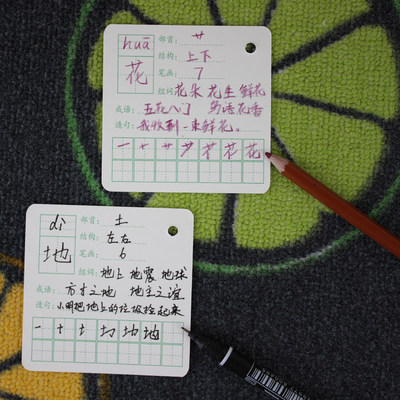 huā 部首: 艹
花 结构: 上下
笔画: 7
组词: 花朵 花生 鲜花
成语: 五花八门 鸟语花香
造句: 我收到一束鲜花。
花
dì 部首: 土
地 结构: 左右
笔画: 6
组词: 地上 地震 地球
成语: 方寸之地 地主之谊
造句: 小明把地上的垃圾捡起来
地